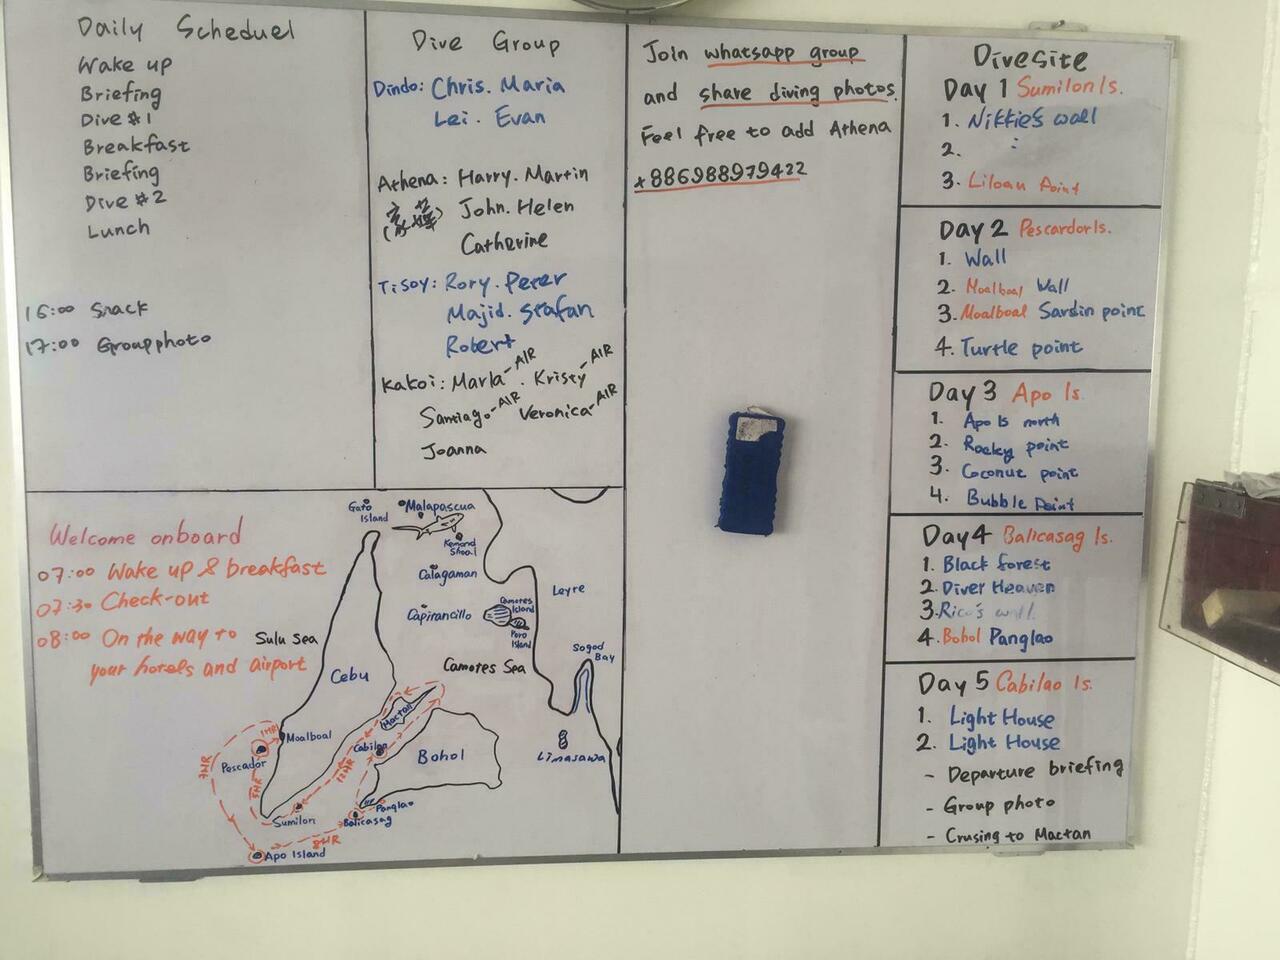 Daily Scheduel
Wake up
Briefing
Dive #1
Breakfast
Briefing
Dive #2
Lunch
16:00 Snack
17:00 Groupphoto
Dive Group
Dindo: Chris. Maria
Lei. Evan
Athena: Harry. Martin
John. Helen
Catherine
Tisoy: Rory. Peter
Majid. Stafan
Robert
Kakoi: Marla-AIR. Kristy-AIR
Santiago-AIR Veronica-AIR
Joanna
Join whatsapp group
and share diving photos.
Feel free to add Athena
+886988979422
Divesite
Day 1 Sumilon Is.
1. Nikkie's wall
2. :
3. Liloan Point
Day 2 Pescardor Is.
1. Wall
2. Moalboal Wall
3. Moalboal Sardin point
4. Turtle point
Day 3 Apo Is.
1. Apo Is north
2. Rocky point
3. Coconut point
4. Bubble Point
Day 4 Balicasag Is.
1. Black forest
2. Diver Heaven
3. Rico's wall
4. Bohol Panglao
Day 5 Cabilao Is.
1. Light House
2. Light House
- Departure briefing
- Group photo
- Crusing to Mactan
Welcome onboard
07:00 Wake up & breakfast
07:30 Check-out
08:00 On the way to
your hotels and airport
Gato Island
Malapascua
Kemond Shoal
Calagaman
Capitancillo
Camotes Island
Poro Island
Leyre
Sogod Bay
Sulu Sea
Cebu
Camotes Sea
Mactan
1HR
Moalboal
Pescador
7HR
5HR
12HR
Cabilao
Bohol
Limasawa
Sumilon
Panglao
Balicasag
8HR
Apo Island